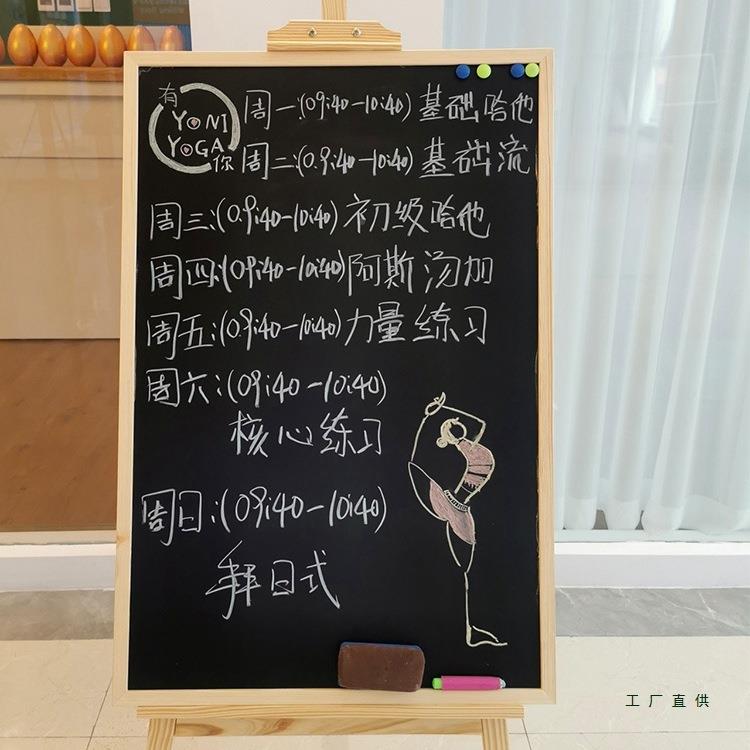 有
YONI
YOGA
你
周一:(09:40-10:40) 基础哈他
周二:(09:40-10:40) 基础流
周三:(09:40-10:40) 初级哈他
周四:(09:40-10:40) 阿斯汤加
周五:(09:40-10:40) 力量练习
周六:(09:40-10:40)
核心练习
周日:(09:40-10:40)
拜日式
工厂直供